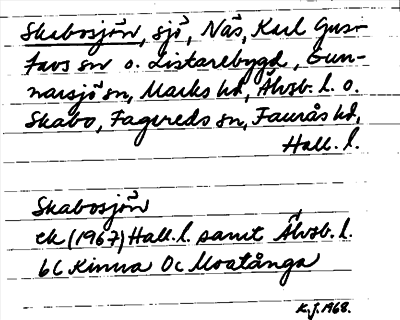 Skabosjön, sjö, Näs, Karl Gus-
tavs sn o. Listarebygd, Gun-
narsjö sn, Marks hd, Älvsb. l. o.
Skabo, Fagereds sn, Faurås hd,
Hall. l.
Skabosjön
ek (1967) Hall. l. samt Älvsb. l.
6C Kinna 0c Moatånga
K.J. 1968.